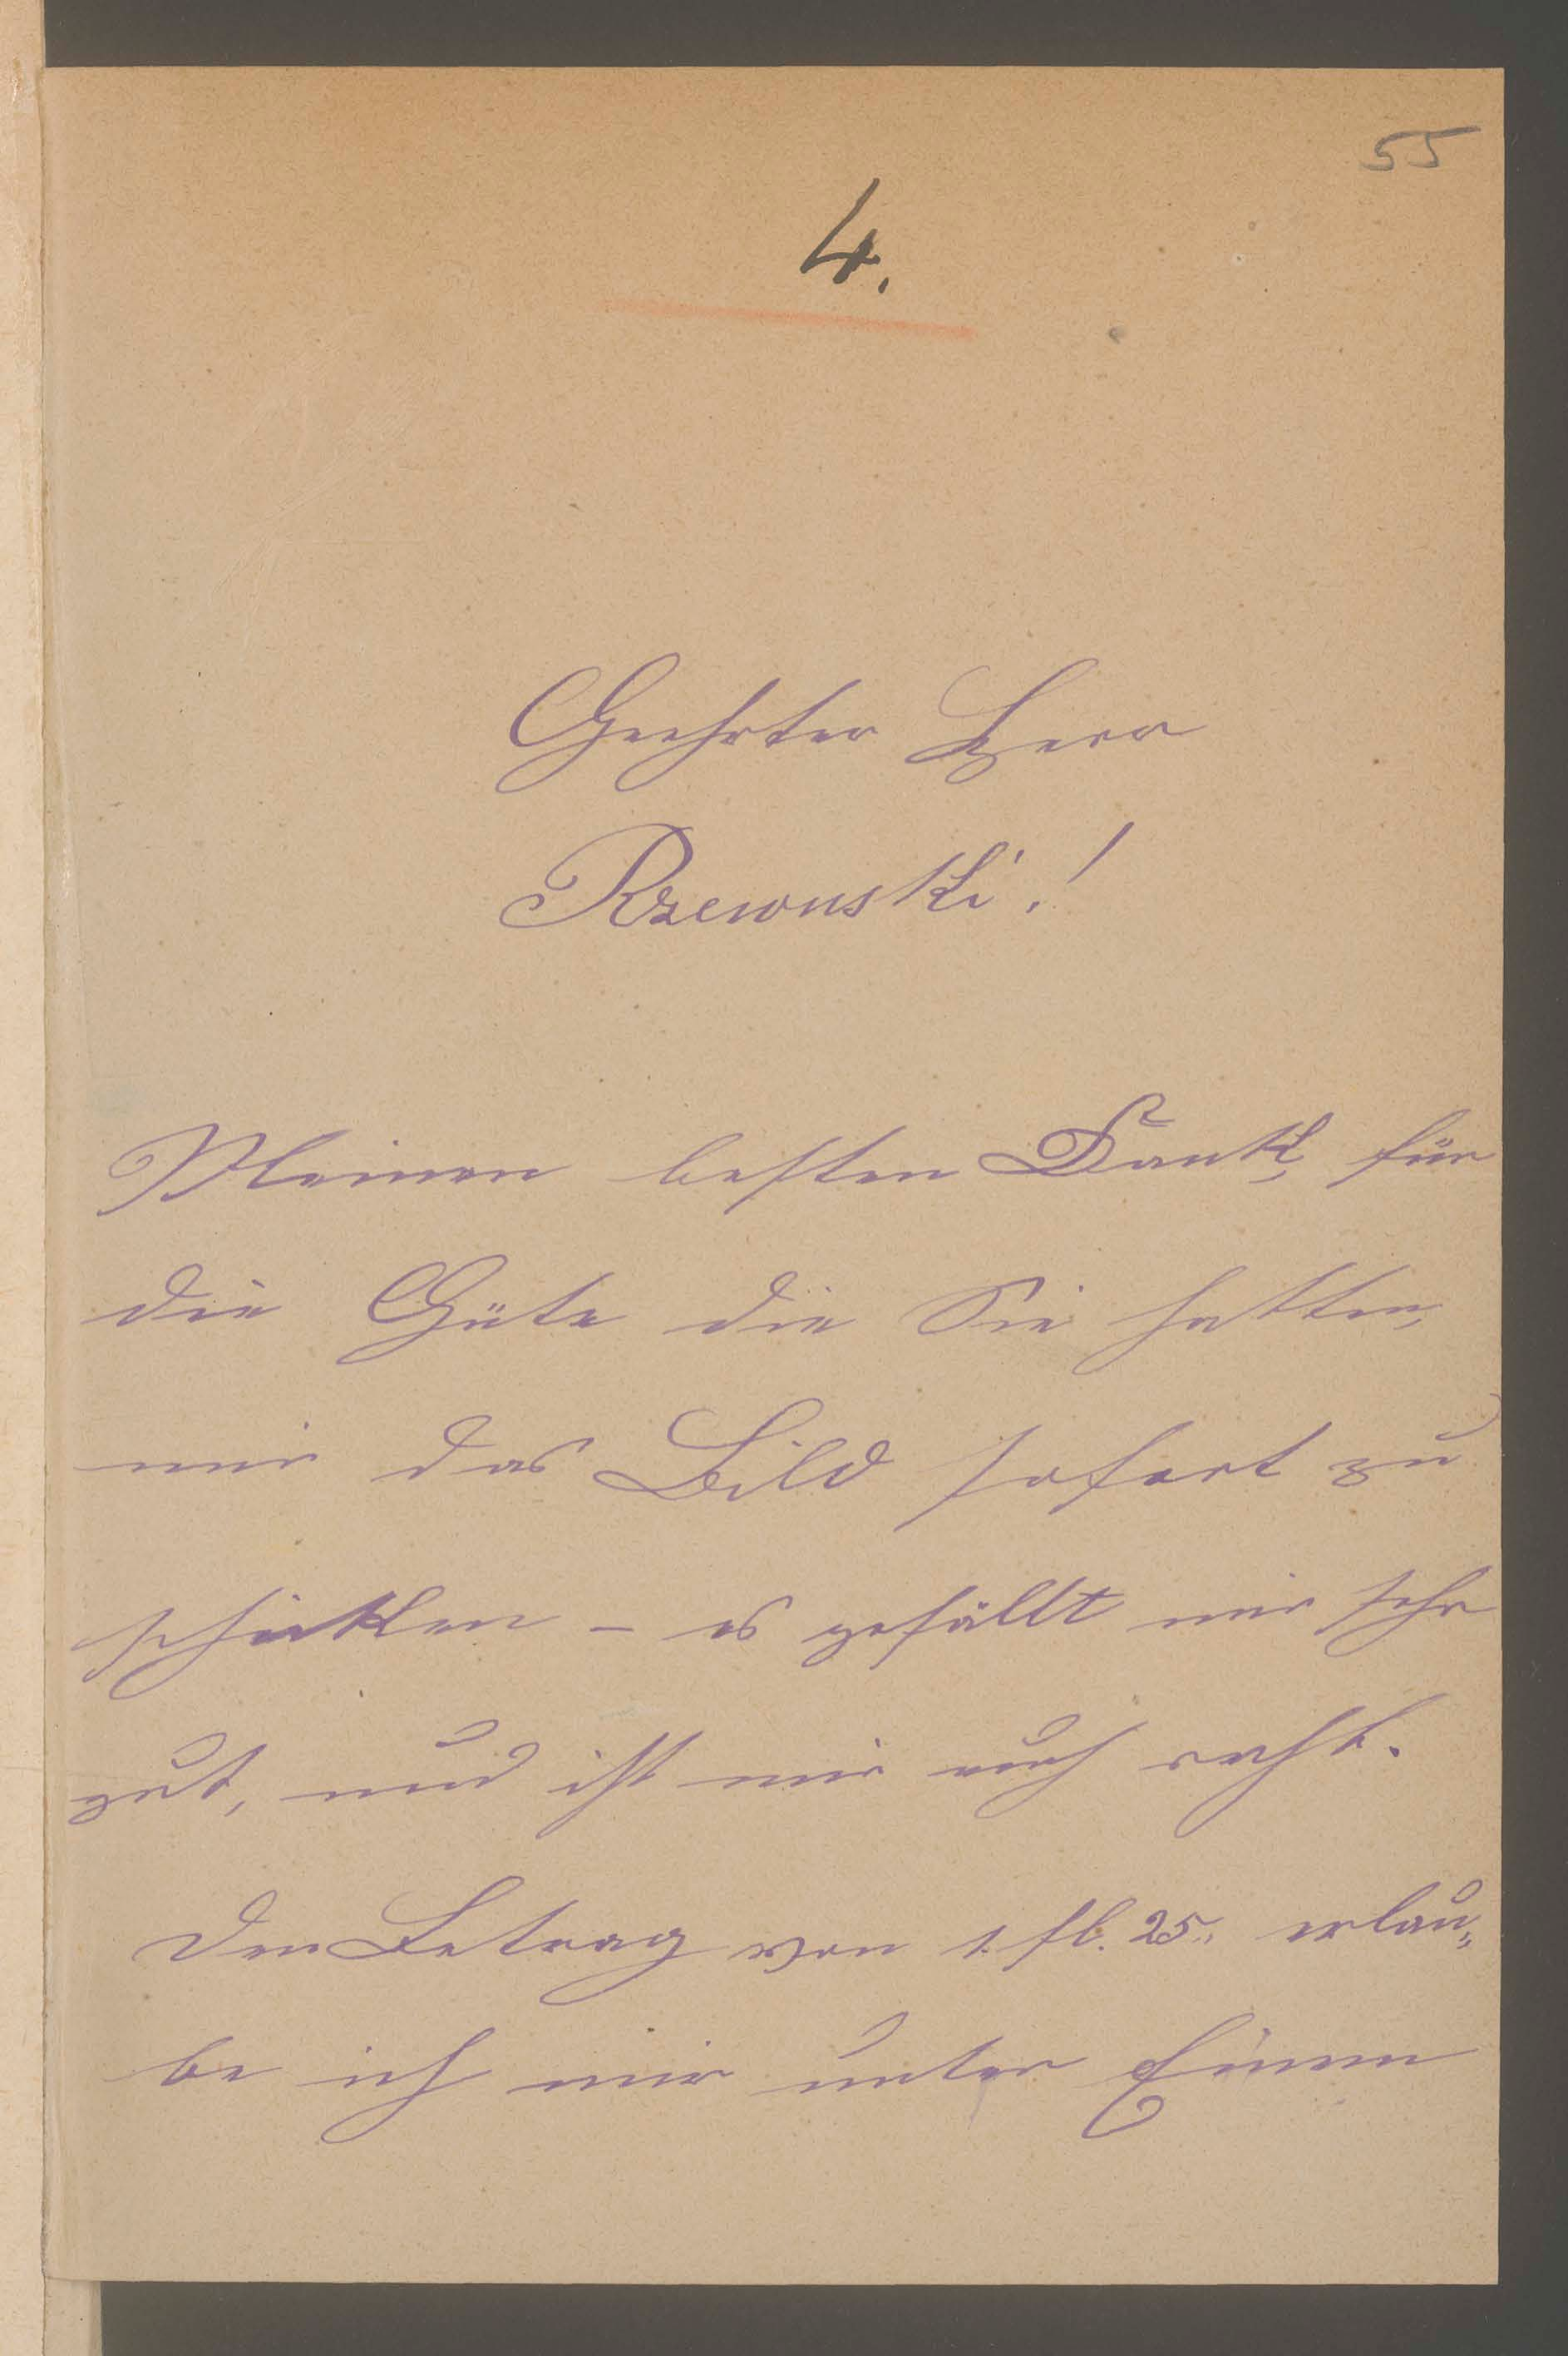 55
4.
Geehrter Herr
Rzewuski!
Meinen besten Dank, für
die Güte die Sie hatten,
mir das Bild sofort zu
schicken – es gefällt mir sehr
gut, und ist mir auch recht.
Den Betrag von 1. fl. 25. erlau„
be ich mir unter Einem